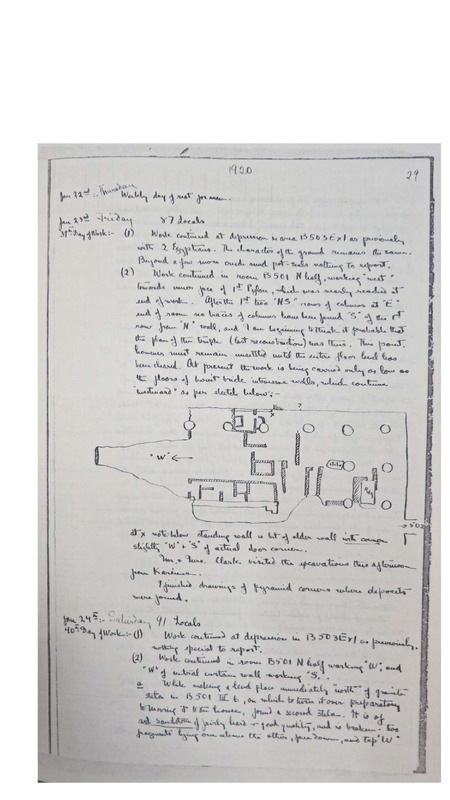 1920
29
Jan 22nd Thursday Weekly day of rest for men.
Jan 23rd Friday 87 Locals
39th Day of Work:- (1) Work continued at depression in area B503 EXI as previously
with 2 Egyptians. The character of the ground remains the same.
Beyond a few more crude mud pot-seals nothing to report.
(2) Work continued in room B501 N half, working "west"
towards inner face of 1st Pylon, which was nearly reached at
end of work. After the 1st two "NS" rows of columns at "E"
end of room no traces of columns have been found "S" of the 1st
row from "N" wall, and I am beginning to think it probable that
the plan of this temple (last reconstruction) was thus. This point
however must remain unsettled until the entire floor level has
been cleared. At present the work is being carried only as low as
the floors of burnt brick intrusive walls, which continue
"westward" as per sketch below:-
?
x
"W" ←
502
At x note below standing wall is bit of older wall with corner
slightly "W" & "S" of actual door corner.
Mr. & Mrs. Clark visited the excavations this afternoon
from Kareima.
Finished drawings of pyramid corners where deposits
were found.
Jan 24th:- Saturday 91 Locals
40th Day of Work:- (1) Work continued at depression in B503 EXI as previously,
nothing special to report.
(2) Work continued in room B501 N half working "W", and
"W" of central curtain wall working "S".
a While making a level place immediately "north" of granite
stela in B501 III E, on which to turn it over preparatory
to moving it to the house, found a second stela. It is of
red sandstone of fairly hard & good quality, and is broken - two
fragments lying one above the other, face down, and top "W"